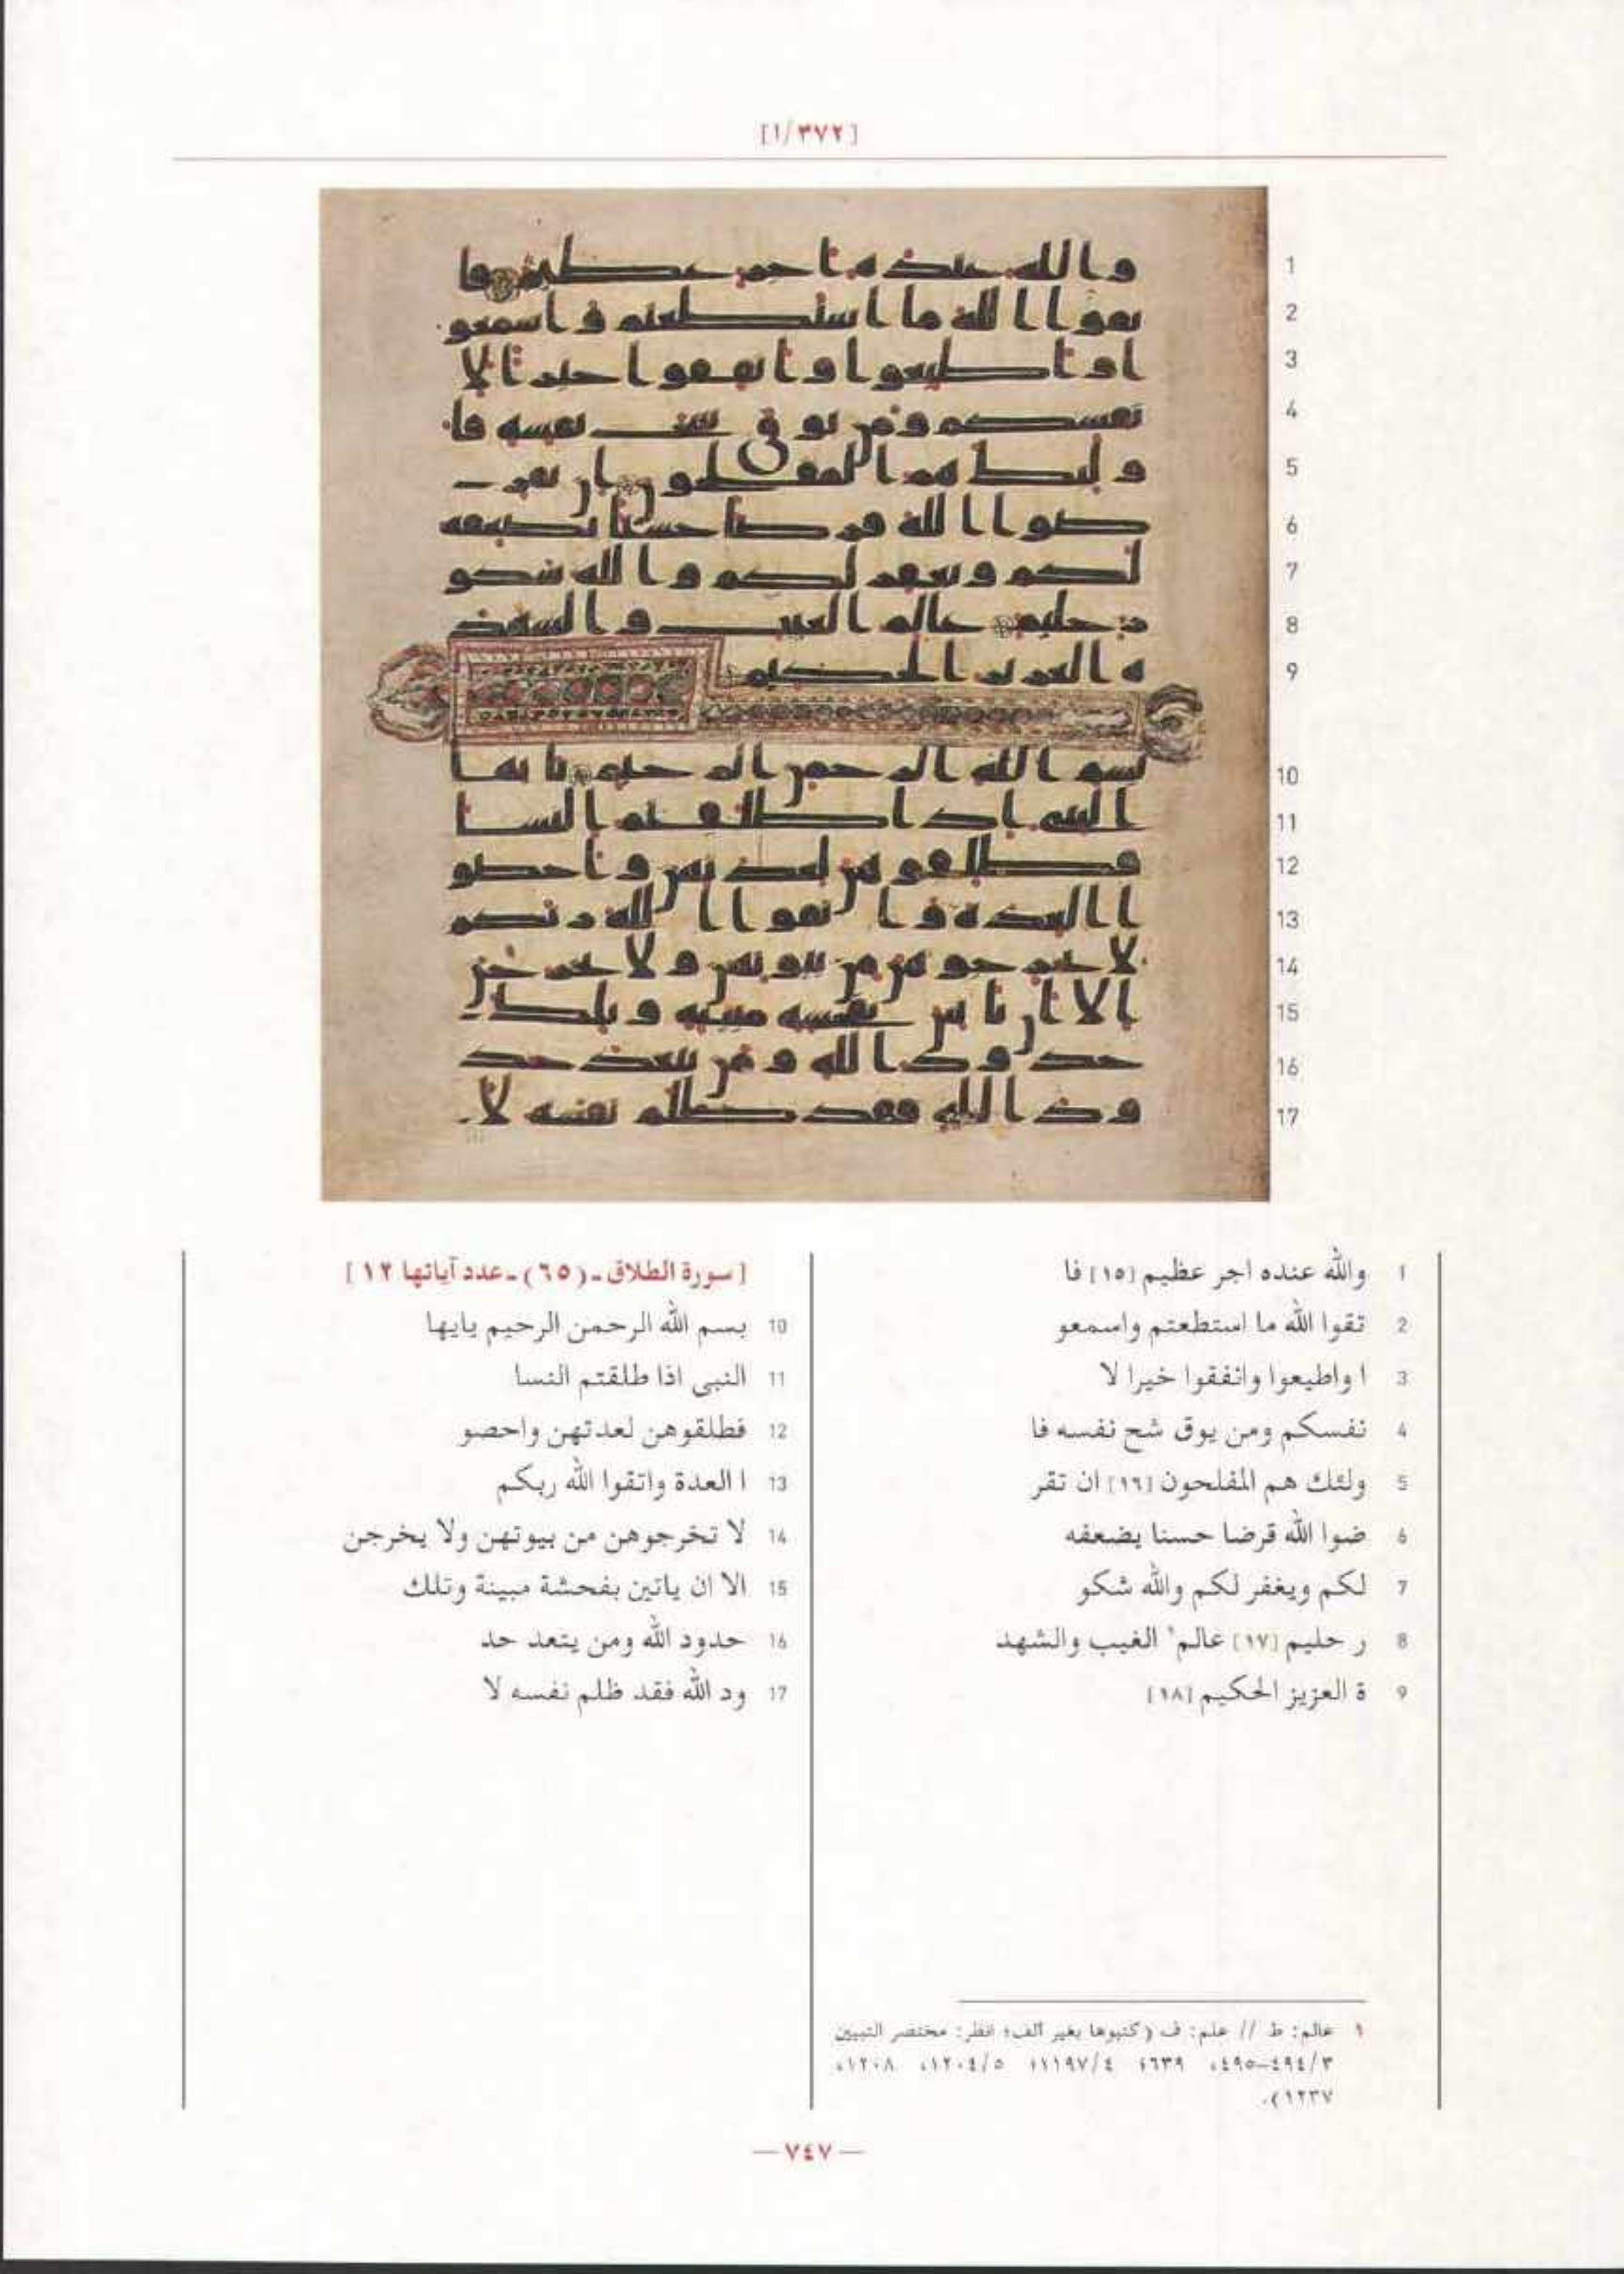 [١/٣٧٢]
1
2
3
4
5
6
7
8
9
10
11
12
13
14
15
16
17
1 والله عنده اجر عظيم [١٥] فا
2 تقوا الله ما استطعتم واسمعو
3 ا واطيعوا وانفقوا خيرا لا
4 نفسكم ومن يوق شح نفسه فا
5 ولئك هم المفلحون [١٦] ان تقر
6 ضوا الله قرضا حسنا يضعفه
7 لكم ويغفر لكم والله شكو
8 ر حليم [١٧] عالم١ الغيب والشهد
9 ة العزيز الحكيم [١٨]
[سورة الطلاق-(٦٥)-عدد آياتها ١٢]
10 بسم الله الرحمن الرحيم يايها
11 النبى اذا طلقتم النسا
12 فطلقوهن لعدتهن واحصو
13 ا العدة واتقوا الله ربكم
14 لا تخرجوهن من بيوتهن ولا يخرجن
15 الا ان ياتين بفحشة مبينة وتلك
16 حدود الله ومن يتعد حد
17 ود الله فقد ظلم نفسه لا
١ عالم: ط // علم: ف (كتبوها بغير ألف؛ انظر: مختصر التبيين
٣/٤٩٤–٤٩٥، ٦٣٩؛ ٤/١١٩٧؛ ٥/١٢٠٤، ١٢٠٨،
١٢٣٧).
— ٧٤٧ —